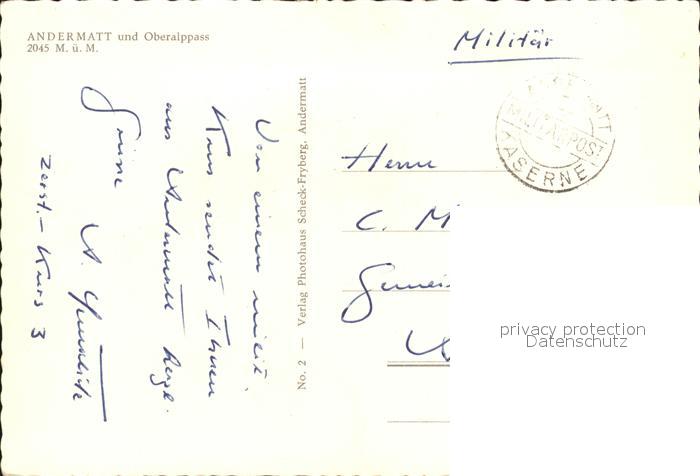 ANDERMATT und Oberalppass
2045 M. ü. M.
Militär
ANDERMATT
MILITÄRPOST
KASERNE
Von einem milit.
Kurs sendet Ihnen
aus Andermatt herzl.
Grüsse
A.
Zerst.-Kurs 3
No. 2 — Verlag Photohaus Scheck-Fryberg, Andermatt
Herrn
C. M
Gemei
privacy protection
Datenschutz